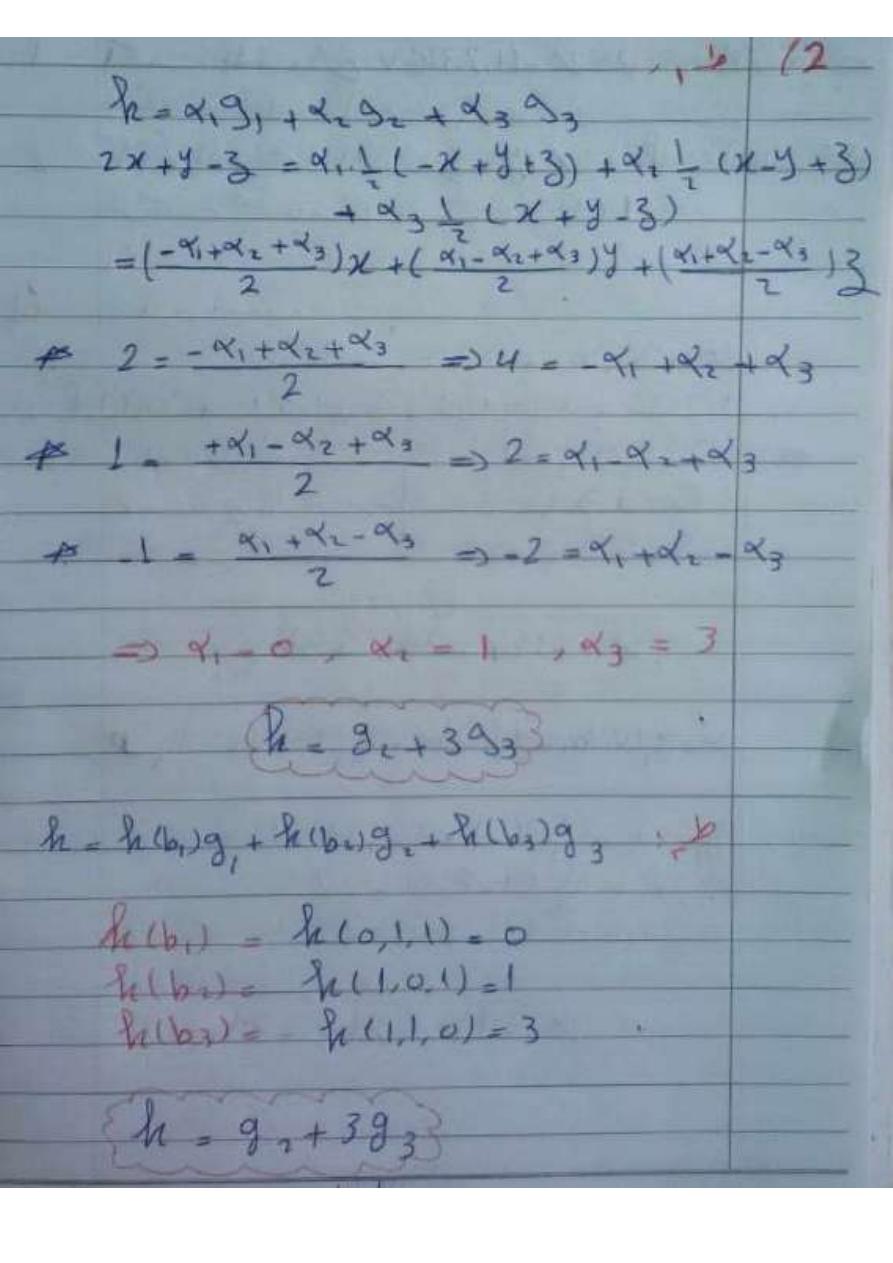 (2 ط1
h = α₁g₁ + α₂g₂ + α₃g₃
2x+y-z = α₁ 1/2 (-x+y+z) + α₂ 1/2 (x-y+z)
+ α₃ 1/2 (x+y-z)
= ((-α₁+α₂+α₃)/2)x + ((α₁-α₂+α₃)/2)y + ((α₁+α₂-α₃)/2)z
* 2 = (-α₁+α₂+α₃)/2 => 4 = -α₁+α₂+α₃
* 1 = (+α₁-α₂+α₃)/2 => 2 = α₁-α₂+α₃
* -1 = (α₁+α₂-α₃)/2 => -2 = α₁+α₂-α₃
=> α₁ = 0 , α₂ = 1 , α₃ = 3
h = g₂ + 3g₃
ط2: h = h(b₁)g₁ + h(b₂)g₂ + h(b₃)g₃
h(b₁) = h(0,1,1) = 0
h(b₂) = h(1,0,1) = 1
h(b₃) = h(1,1,0) = 3
h = g₂ + 3g₃